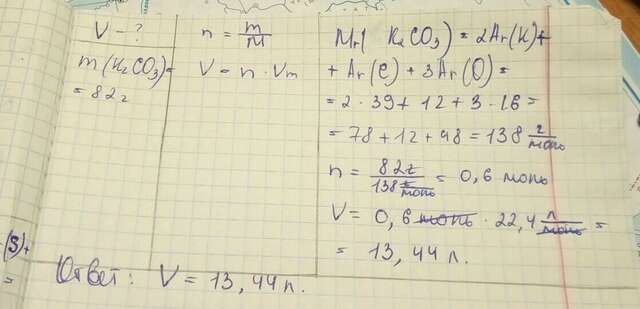 V - ?
m(K₂CO₃)=
= 82 г
n = m/M
V = n · Vm
Mr( K₂CO₃) = 2Ar(K)+
+ Ar(C) + 3Ar(O) =
= 2 · 39 + 12 + 3 · 16 =
= 78 + 12 + 48 = 138 г/моль
n = 82г/138 г/моль = 0,6 моль
V = 0,6 моль · 22,4 л/моль =
= 13,44 л.
(S)+
=
Ответ: V = 13,44 л.